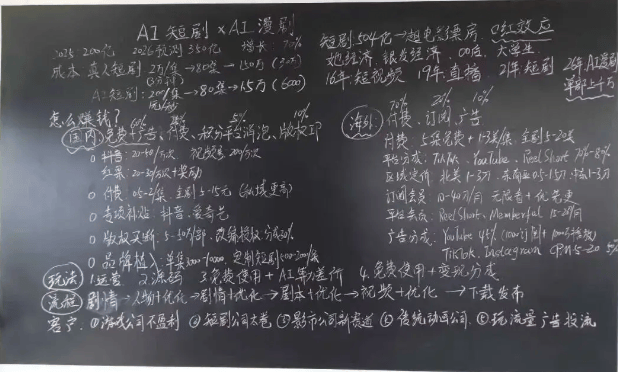 AI 短剧 × AI 漫剧
2025 200亿 2026预测 350亿 增长：70%
成本 真人短剧 2万/集 → 80集 → 150万 (3万)
AI短剧：200/集 → 80集 → 1.5万 (600)
怎么赚钱？ 60% 5% 10%
国内 免费+广告、付费、版权IP
○ 抖音：20-40/万次 视频号 200/万次
红果：20-30/万次+奖励
○ 付费：0.5-2/集 全剧 5-15元 (私域更高)
○ 专项补贴：抖音、爱奇艺
○ 版权买断：5-50万/部、改编授权、分成30%
○ 品牌植入：单集1000-10000、定制短剧
玩法 1.运营 2.源码 3.免费使用+AI算力差价 4.免费使用+变现分成
流程 剧情 → 人物+优化 → 剧情+优化 → 剧本+优化 → 视频+优化 → 下载发布
客户：①游戏公司不盈利 ②短剧公司太卷 ③影视公司新赛道 ④传统动画公司 ⑤玩流量广告投流
短剧 504亿 → 超电影票房 口红效应
她经济、银发经济、00后、大学生
16年 短视频 19年 直播 21年 短剧 26年AI漫剧
单部上千万
海外 70% 20% 10%
付费、订阅、广告
付费 5集免费 + 1-3美/集、全剧5-20美
平台分成：TikTok、YouTube、ReelShort 70%-80%
区域定价 北美1-3刀、东南亚0.5-1.5刀
订阅会员 10-40刀/月 无限看+优先更
平台卖点：ReelShort、Memberful 15-20/月
广告分成：YouTube 45%
TikTok、Instagram CPM 5-20